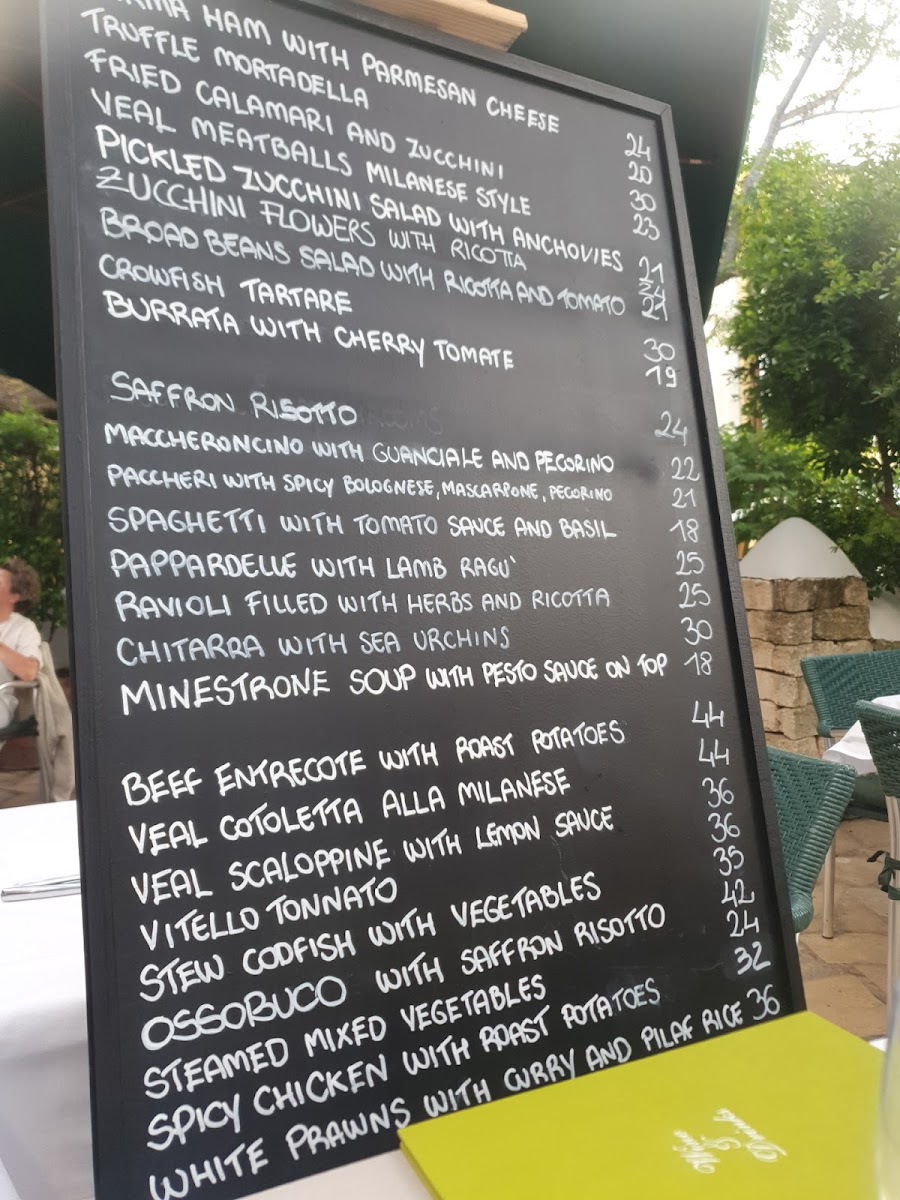 ARMA HAM WITH PARMESAN CHEESE 24
TRUFFLE MORTADELLA 20
FRIED CALAMARI AND ZUCCHINI 30
VEAL MEATBALLS MILANESE STYLE 23
PICKLED ZUCCHINI SALAD WITH ANCHOVIES 21
ZUCCHINI FLOWERS WITH RICOTTA 24
BROAD BEANS SALAD WITH RICOTTA AND TOMATO 21
CROWFISH TARTARE 30
BURRATA WITH CHERRY TOMATE 19
SAFFRON RISOTTO 24
MACCHERONCINO WITH GUANCIALE AND PECORINO 22
PACCHERI WITH SPICY BOLOGNESE, MASCARPONE, PECORINO 21
SPAGHETTI WITH TOMATO SAUCE AND BASIL 18
PAPPARDELLE WITH LAMB RAGU' 25
RAVIOLI FILLED WITH HERBS AND RICOTTA 25
CHITARRA WITH SEA URCHINS 30
MINESTRONE SOUP WITH PESTO SAUCE ON TOP 18
BEEF ENTRECOTE WITH ROAST POTATOES 44
VEAL COTOLETTA ALLA MILANESE 44
VEAL SCALOPPINE WITH LEMON SAUCE 36
VITELLO TONNATO 36
STEW CODFISH WITH VEGETABLES 35
OSSOBUCO WITH SAFFRON RISOTTO 42
STEAMED MIXED VEGETABLES 24
SPICY CHICKEN WITH ROAST POTATOES 32
WHITE PRAWNS WITH CURRY AND PILAF RICE 36